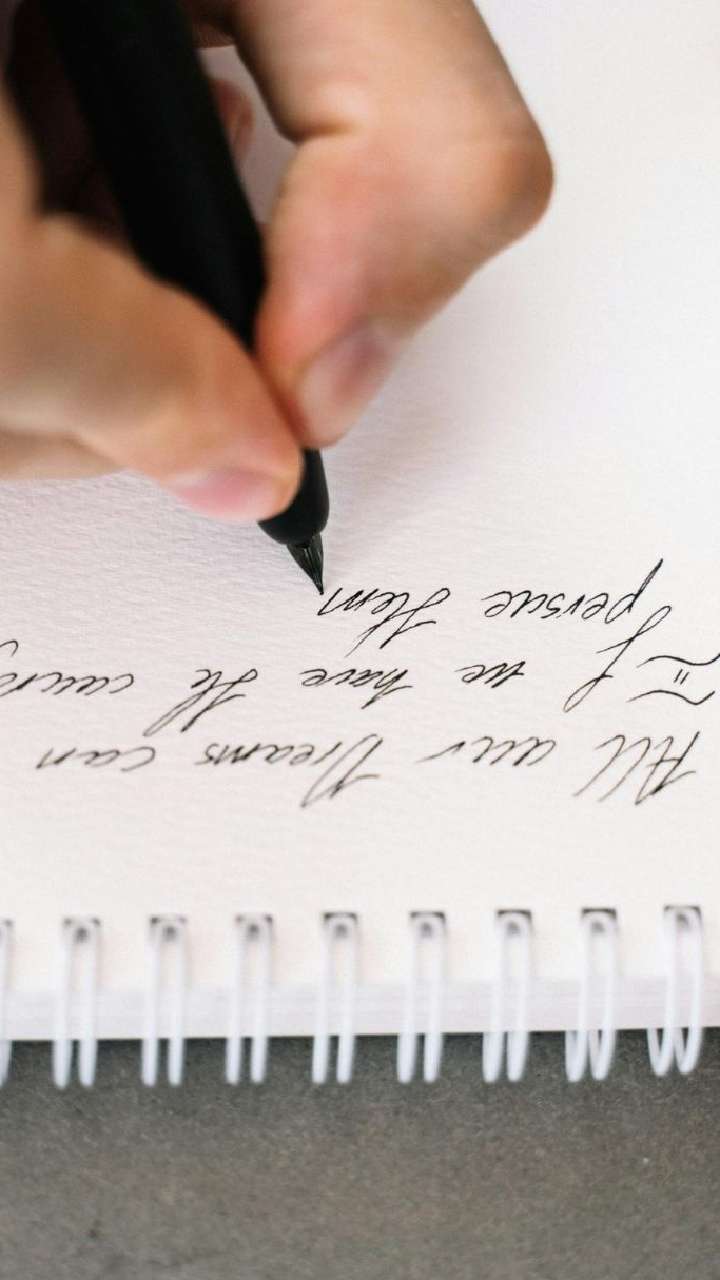 All our Dreams can
if we have the courag
persue them